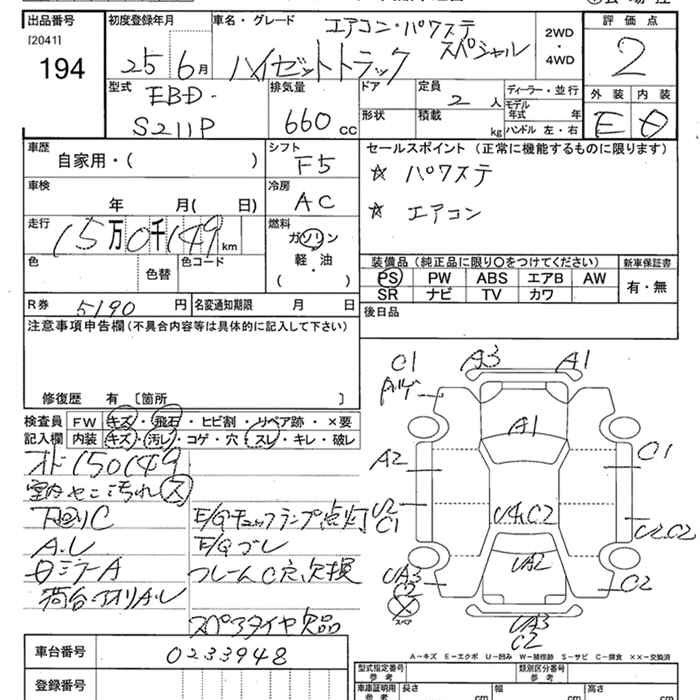 出品番号 初度登録年月 車名・グレード エアコン・パワステ 2WD 評価点
[2041] スペシャル ・
194 25年6月 ハイゼットトラック 4WD 2
型式 EBD- 排気量 ドア 定員 ディーラー・並行 外装 内装
2人 モデル
S211P 660cc 形状 積載 年式 年 E D
kg ハンドル 左・右
車歴 シフト セールスポイント(正常に機能するものに限ります)
自家用・( ) F5 ☆ パワステ
車検 冷房
年 月( 日) AC ☆ エアコン
走行 15万0千149km 燃料
ガソリン
色 色替 色コード 軽・油 装備品(純正品に限り○をつけてください) 新車保証書
( ・ ) PS PW ABS エアB AW 有・無
R券 5190円 名変通知期限 月 日 SR ナビ TV カワ
注意事項申告欄(不具合内容等は具体的に記入して下さい) 後日品
修復歴 有 〔箇所 〕
検査員 FW キズ・飛石・ヒビ割・リペア跡・×要
記入欄 内装 キズ・汚レ・コゲ・穴・スレ・キレ・破レ
オド150149
室内ヤニ汚れ ス
下廻りC E/Gチェックランプ点灯
A.レ E/Gブレ
日ミラーA フレームC穴欠損
荷台・アオリA.レ
スペアタイヤ欠品
C1 A3 A1
A1
A2 C1
U2
C1 U4,C2 U2C2
UA2
UA3
C2 C2
スペア UA3
C2
A-キズ E-エクボ U-凹み W-補修跡 S-サビ C-腐食 ××-交換済
車台番号 0233948 型式指定番号 類別区分番号
参考 参考
登録番号 車庫証明用 長さ 幅 高さ
参考 cm cm cm